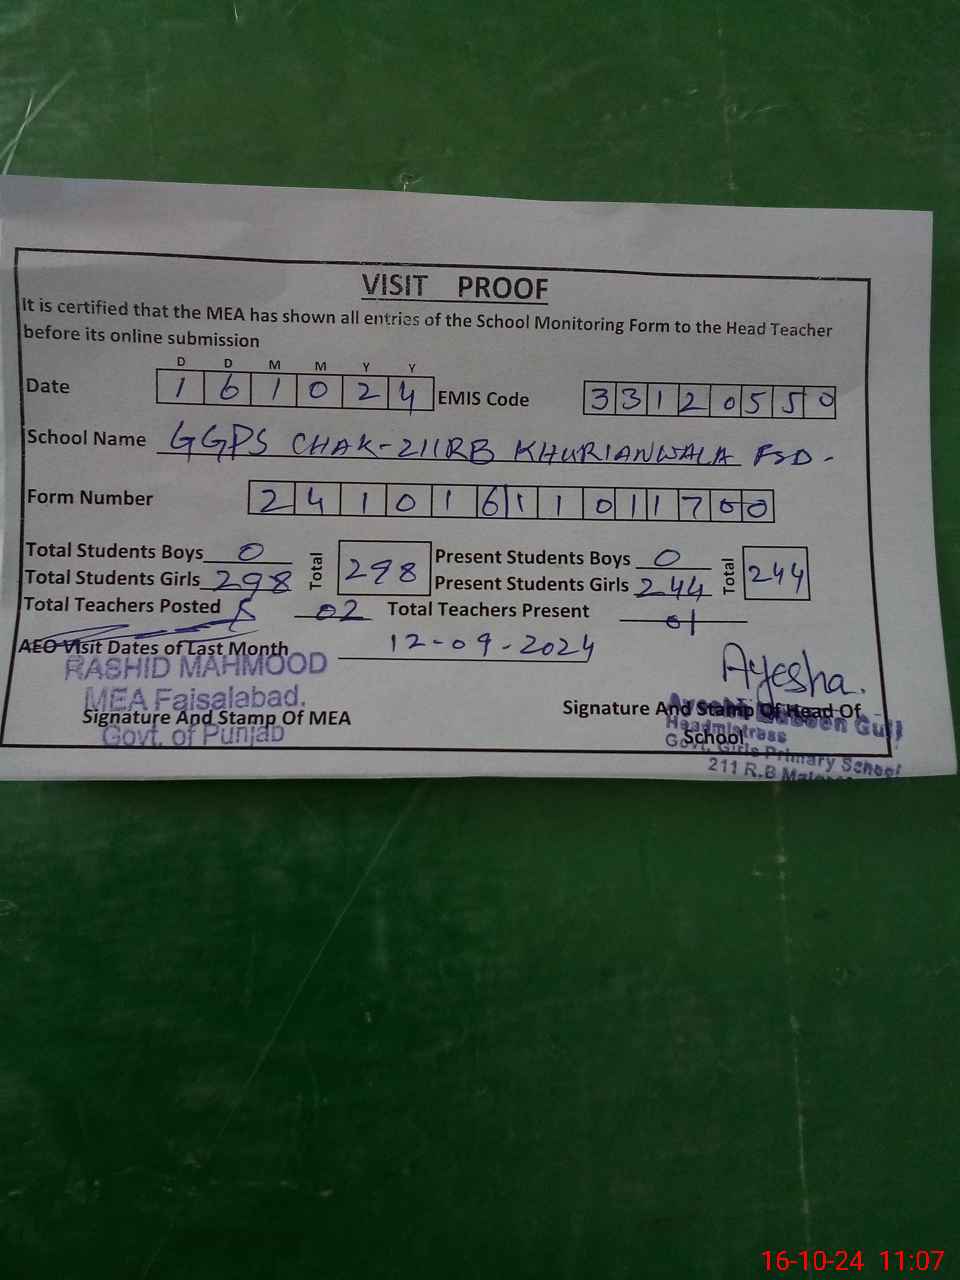 VISIT PROOF
It is certified that the MEA has shown all entries of the School Monitoring Form to the Head Teacher
before its online submission
D D M M Y Y
Date 1 6 1 0 2 4 EMIS Code 3 3 1 2 0 5 5 0
School Name GGPS CHAK-211RB KHURIANWALA FSD-
Form Number 2 4 1 0 1 6 1 1 0 1 1 7 0 0
Total Students Boys 0 Total 298 Present Students Boys 0 Total 244
Total Students Girls 298 Present Students Girls 244
Total Teachers Posted 02 Total Teachers Present 01
AEO Visit Dates of Last Month 12-09-2024
RASHID MAHMOOD
MEA Faisalabad.
Signature And Stamp Of MEA
Govt. of Punjab
Ayesha.
Signature And Stamp Of Head Of
School
Gull
Headmistress
Govt. Girls Primary School
211 R.B
16-10-24 11:07